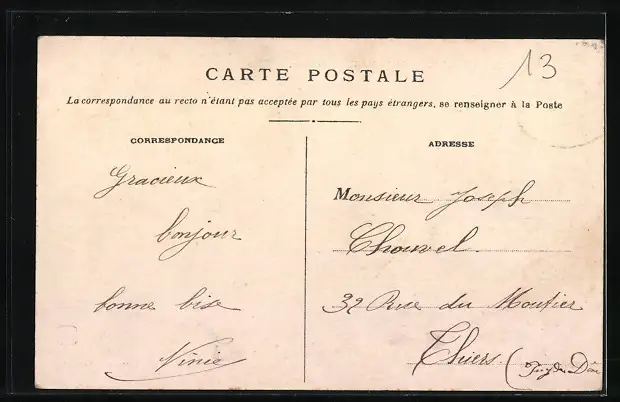 13
CARTE POSTALE
La correspondance au recto n'étant pas acceptée par tous les pays étrangers, se renseigner à la Poste
CORRESPONDANCE
Gracieux
bonjour
bonne bise
Ninie
ADRESSE
Monsieur Joseph
Chouvel.
32 Rue du Moutier
Thiers. (Puy de Dôme